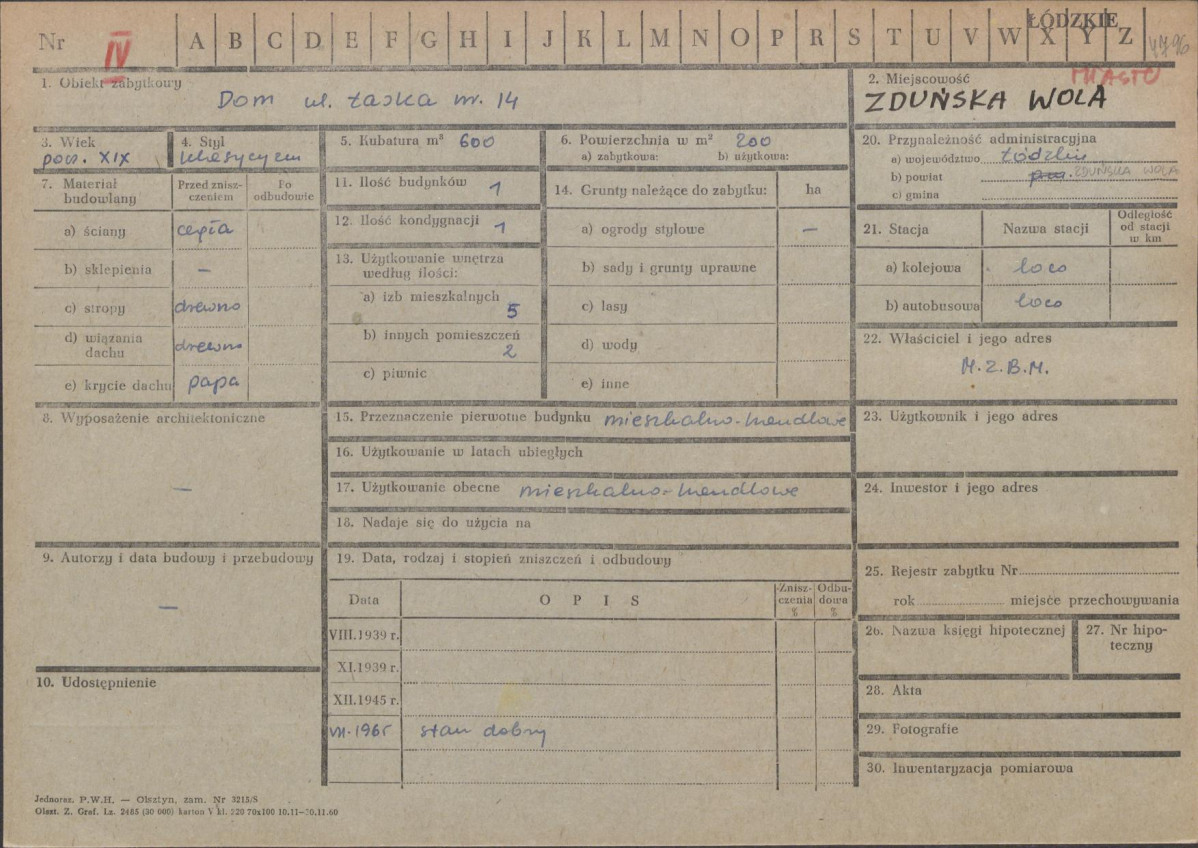 Nr IV A B C D E F G H I J K L M N O P R S T U V W X Y Z
ŁÓDZKIE
4796
1. Obiekt zabytkowy
Dom ul. Łaska nr. 14
2. Miejscowość
MIASTO
ZDUŃSKA WOLA
3. Wiek
poł. XIX
4. Styl
klasycyzm
5. Kubatura m³ 600
6. Powierzchnia w m² 200
a) zabytkowa: b) użytkowa:
7. Materiał budowlany
Przed zniszczeniem
Po odbudowie
a) ściany cegła
b) sklepienia —
c) stropy drewno
d) wiązania dachu drewno
e) krycie dachu papa
8. Wyposażenie architektoniczne
—
9. Autorzy i data budowy i przebudowy
—
10. Udostępnienie
11. Ilość budynków 1
12. Ilość kondygnacji 1
13. Użytkowanie wnętrza
według ilości:
a) izb mieszkalnych
5
b) innych pomieszczeń
2
c) piwnic
14. Grunty należące do zabytku: ha
a) ogrody stylowe —
b) sady i grunty uprawne
c) lasy
d) wody
e) inne
15. Przeznaczenie pierwotne budynku mieszkalno-handlowe
16. Użytkowanie w latach ubiegłych
17. Użytkowanie obecne mieszkalno-handlowe
18. Nadaje się do użycia na
19. Data, rodzaj i stopień zniszczeń i odbudowy
Data
OPIS
Zniszczenia %
Odbudowa %
VIII.1939 r.
XI.1939 r.
XII.1945 r.
VII.1965 stan dobry
20. Przynależność administracyjna
a) województwo Łódzkie
b) powiat ZDUŃSKA WOLA
c) gmina
21. Stacja
Nazwa stacji
Odległość
od stacji
w km
a) kolejowa loco
b) autobusowa loco
22. Właściciel i jego adres
M.Z.B.M.
23. Użytkownik i jego adres
24. Inwestor i jego adres
25. Rejestr zabytku Nr
rok miejsce przechowywania
26. Nazwa księgi hipotecznej
27. Nr hipoteczny
28. Akta
29. Fotografie
30. Inwentaryzacja pomiarowa
Jednoraz. P.W.H. — Olsztyn, zam. Nr 3215/S
Olszt. Z. Graf. Lz. 2465 (30 000) karton V kl. 220 70x100 10.11—30.11.60